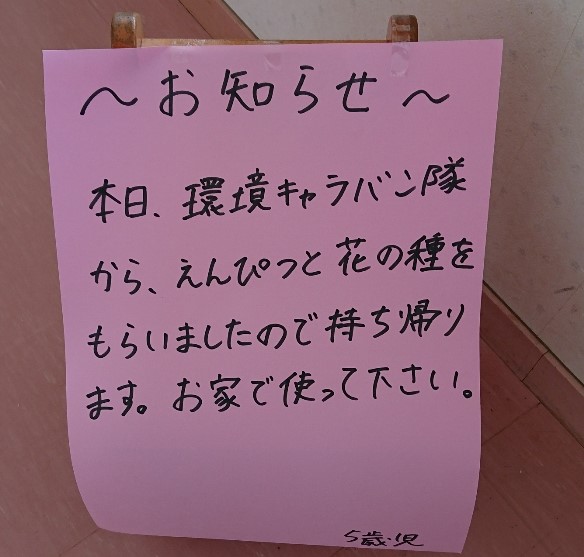 〜お知らせ〜
本日、環境キャラバン隊
から、えんぴつと花の種を
もらいましたので持ち帰り
ます。お家で使って下さい。
5歳児